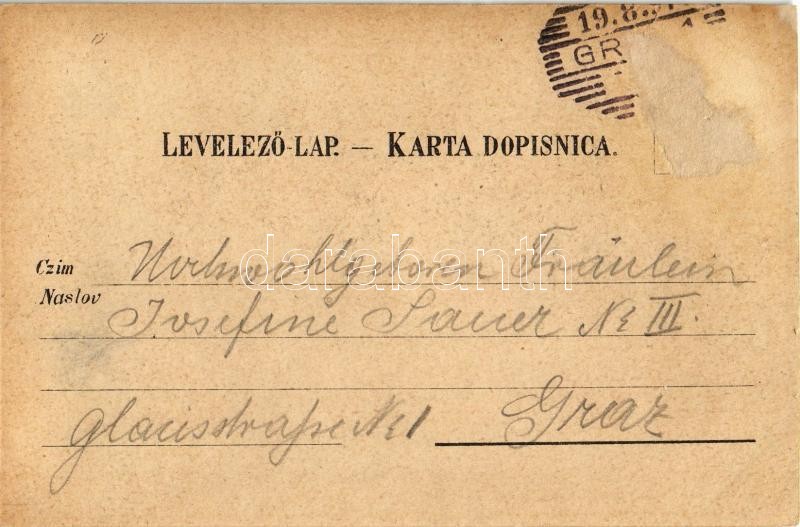 19.8.
GR
LEVELEZŐ-LAP. — KARTA DOPISNICA.
Czim Hochwohlgeboren Fräulein
Naslov Josefine Sauer № III.
№ 1 Graz
darabanth